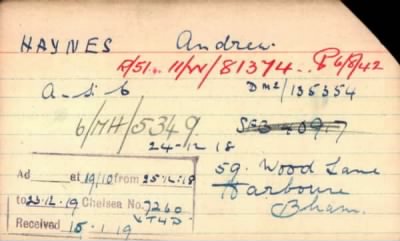 HAYNES Andrew.
R/51. 11/W/81374.. P6/8/42
A-S.C DM2/135354
6/MH/5349.
24-12 18
59. Wood Lane
Harborne
Bham.
Ad at 19/10 from 25.12.18
to 23.12.19 Chelsea No. 7260
Received 15.1.19